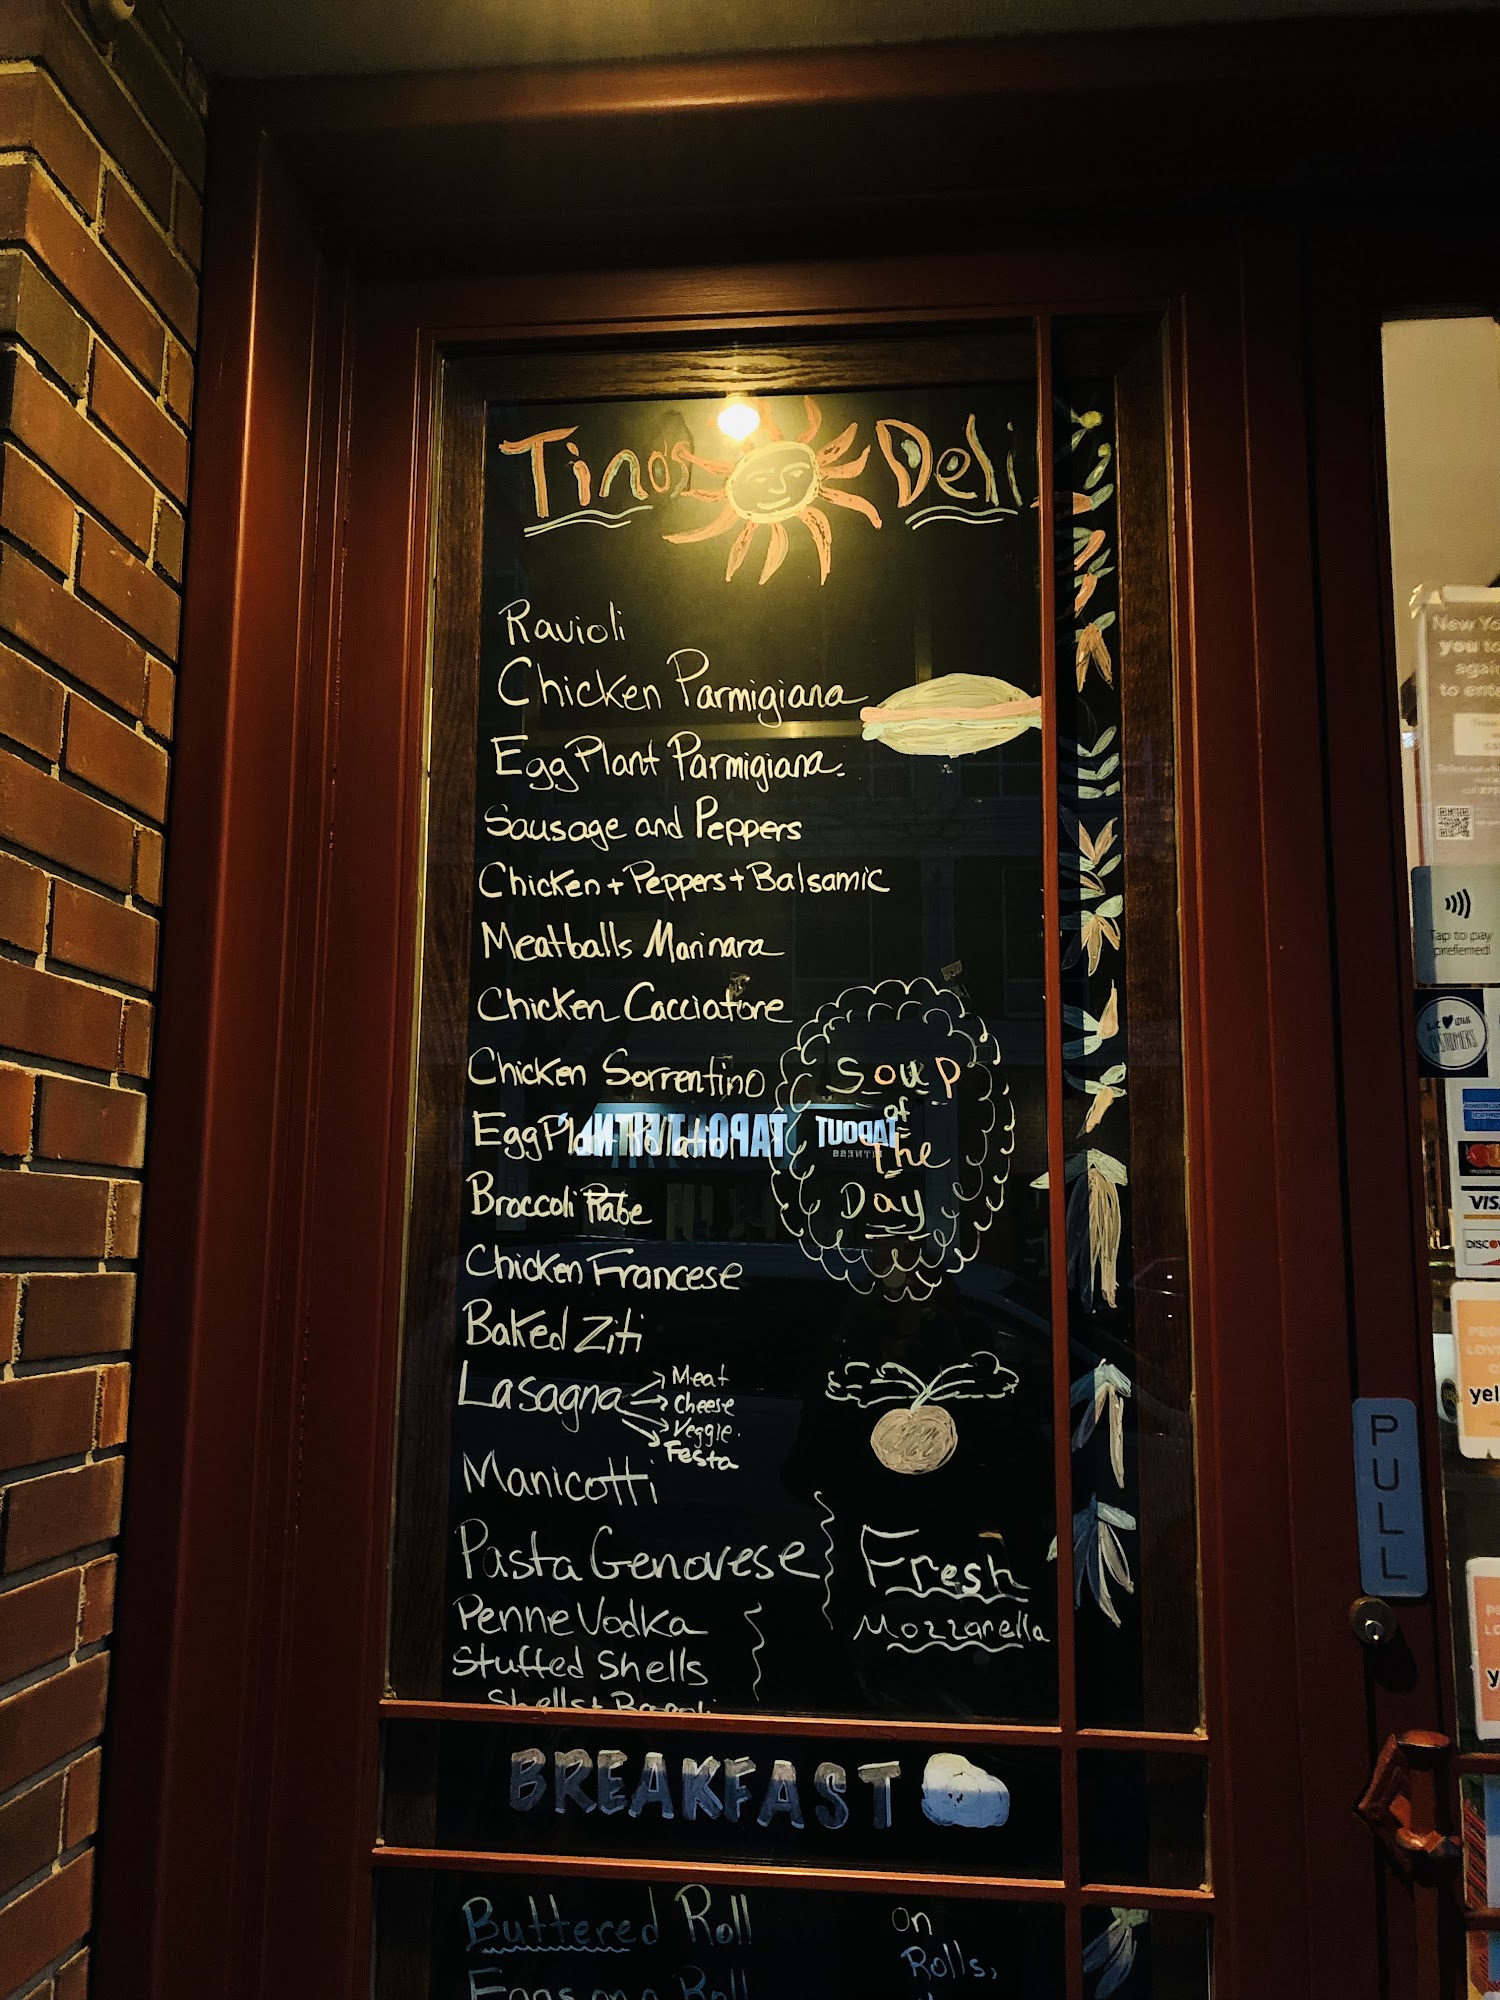 Tino's Deli
Ravioli
Chicken Parmigiana
EggPlant Parmigiana.
Sausage and Peppers
Chicken + Peppers + Balsamic
Meatballs Marinara
Chicken Cacciatore
Chicken Sorrentino
EggPlant
Broccoli Rabe
Chicken Francese
Baked Ziti
Lasagna
Meat
Cheese
Veggie.
Festa
Manicotti
Pasta Genovese
Penne Vodka
Stuffed Shells
Soup
of
The
Day
Fresh
Mozzarella
TAPOUT
FITNESS
BREAKFAST
Buttered Roll
Eggs on a Roll
on
Rolls,
New Yo
you to
again
to ente
Tap to pay
preferred!
CUSTOMERS
VIS
DISCO
yel
PULL
y